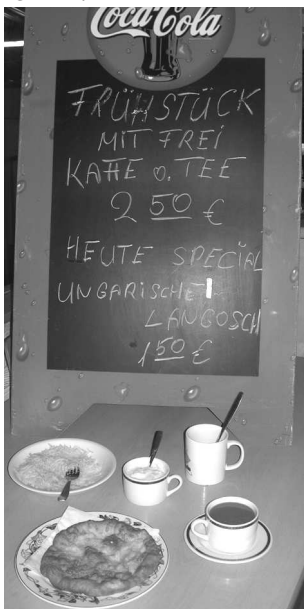 Coca-Cola
FRÜHSTÜCK
MIT FREI
KAFFE o. TEE
2 50 €
HEUTE SPECIAL
UNGARISCHE
LANGOSCH
1 50 €